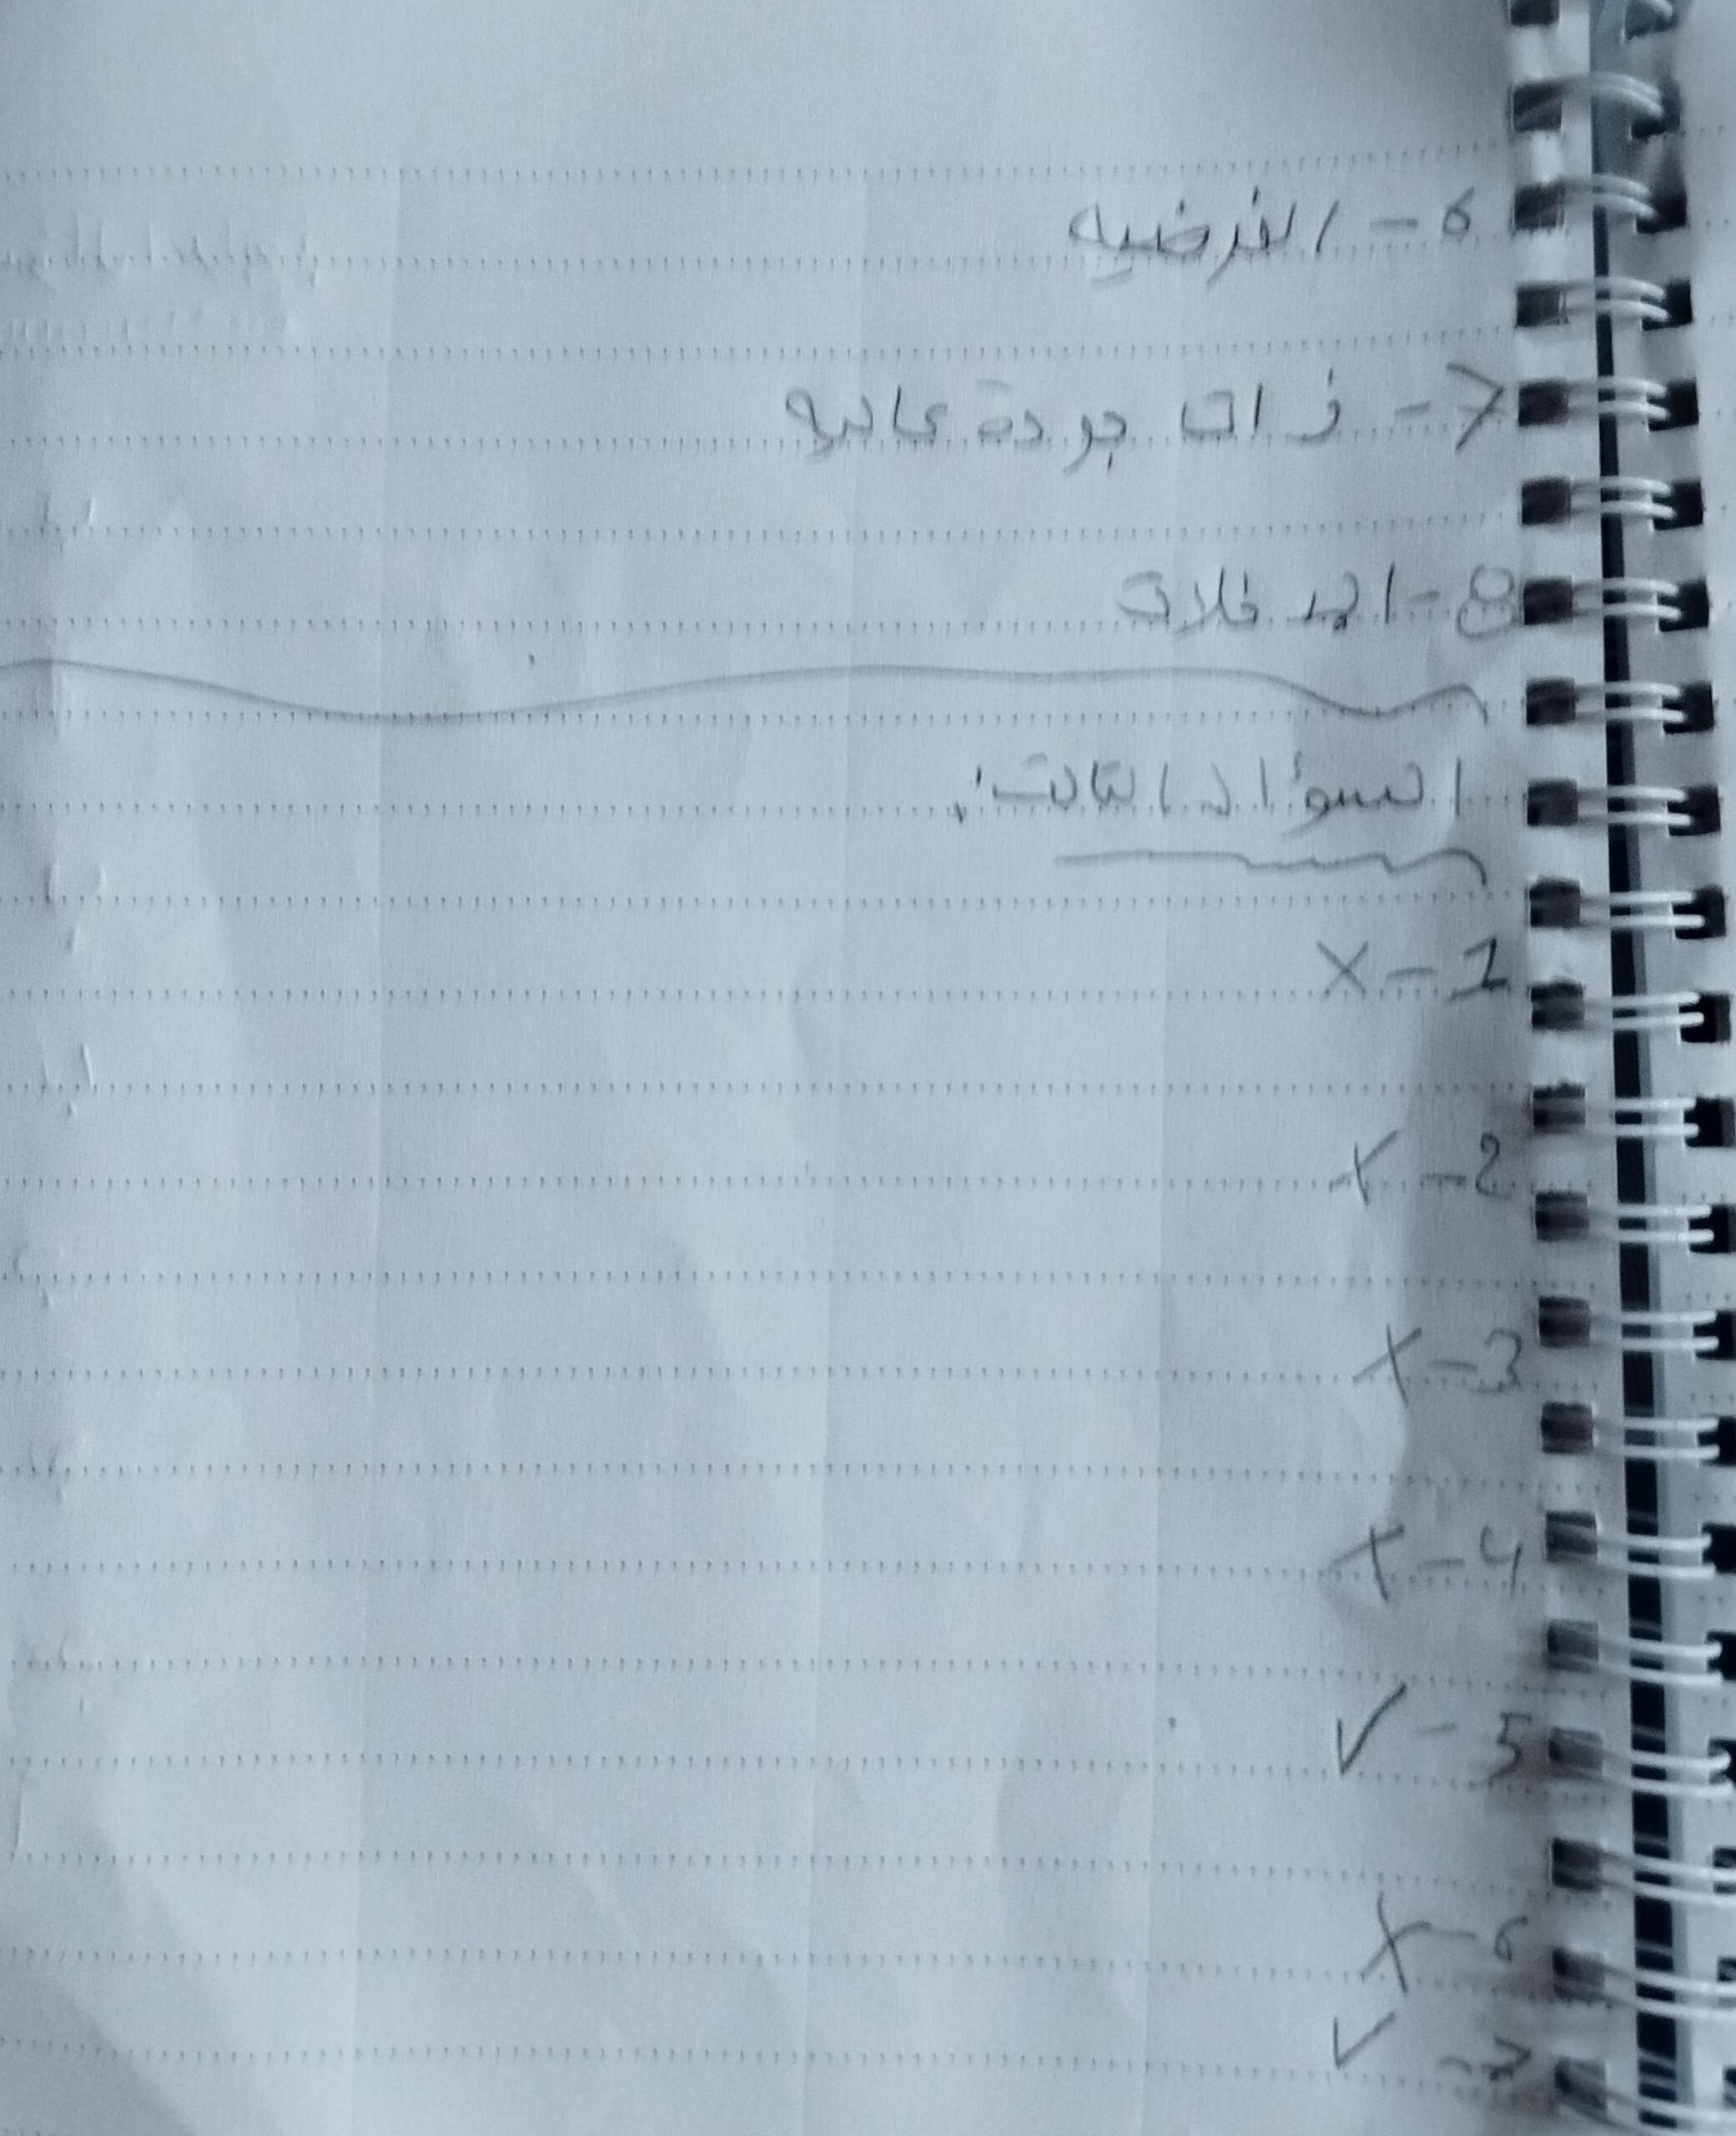 6- الفرضيه
7- ذات جودة عاليه
8- المدخلات
السؤال الثالث:
1- X
2- X
3- X
4- X
5- ✓
6- X
7- ✓